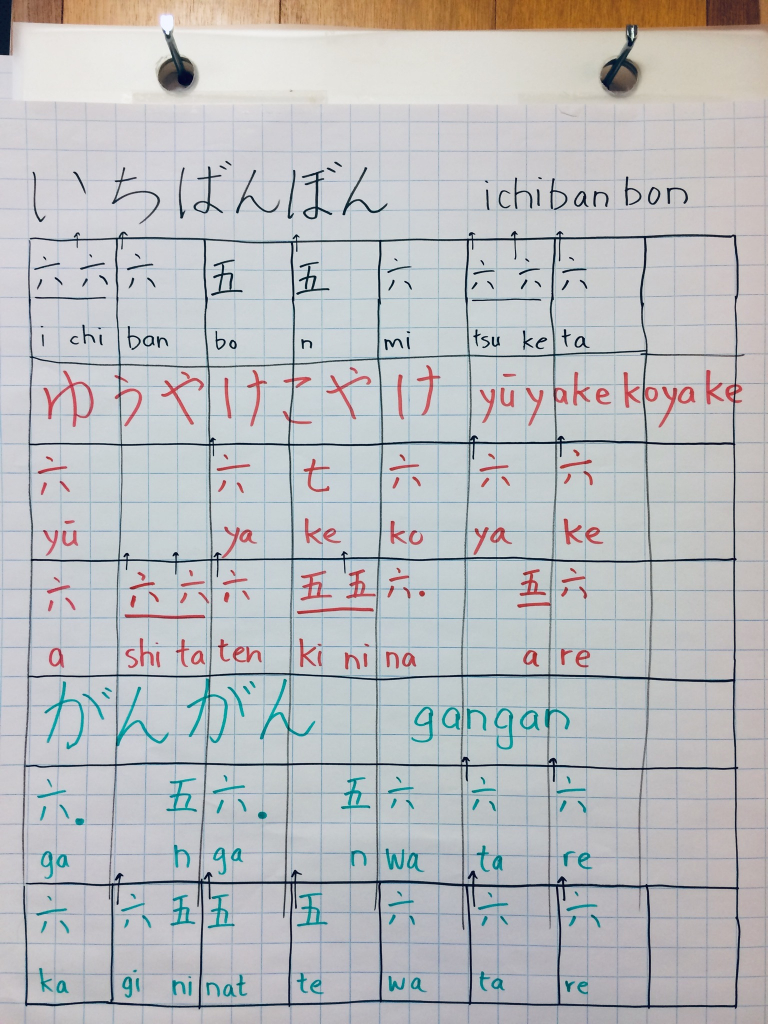 いちばんぼん ichibanbon
六 六 六 五 五 六 六 六 六
i chi ban bo n mi tsu ke ta
ゆうやけこやけ yūyakekoyake
六 六 七 六 六 六
yū ya ke ko ya ke
六 六 六 六 五 五 六. 五 六
a shi ta ten ki ni na a re
がんがん gangan
六. 五 六. 五 六 六 六
ga n ga n wa ta re
六 六 五 五 五 六 六 六
ka gi ni nat te wa ta re